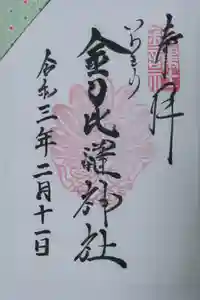 奉拝
いわきの
金刀比羅神社
令和三年二月十一日